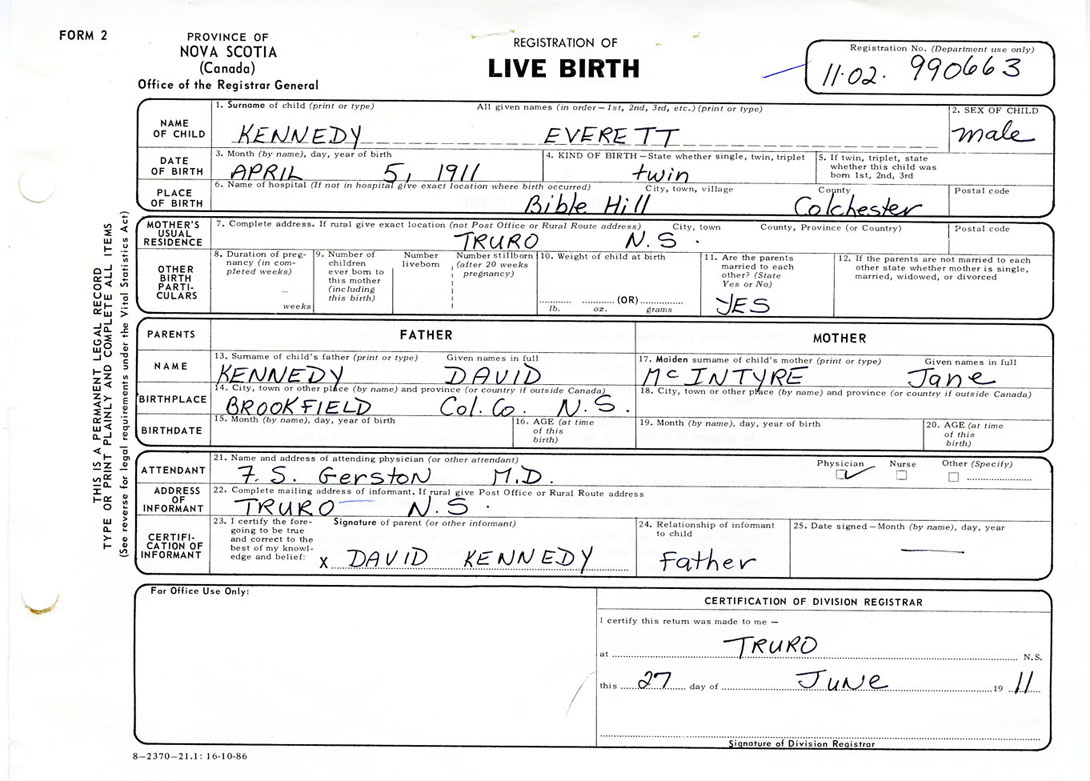 FORM 2
PROVINCE OF
NOVA SCOTIA
(Canada)
Office of the Registrar General
REGISTRATION OF
LIVE BIRTH
Registration No. (Department use only)
11·02. 990663
THIS IS A PERMANENT LEGAL RECORD
TYPE OR PRINT PLAINLY AND COMPLETE ALL ITEMS
(See reverse for legal requirements under the Vital Statistics Act)
NAME OF CHILD
1. Surname of child (print or type) All given names (in order—1st, 2nd, 3rd, etc.) (print or type)
KENNEDY EVERETT
2. SEX OF CHILD
male
DATE OF BIRTH
3. Month (by name), day, year of birth
APRIL 5, 1911
4. KIND OF BIRTH—State whether single, twin, triplet
twin
5. If twin, triplet, state
whether this child was
born 1st, 2nd, 3rd
PLACE OF BIRTH
6. Name of hospital (If not in hospital give exact location where birth occurred) City, town, village County Postal code
Bible Hill Colchester
MOTHER'S USUAL RESIDENCE
7. Complete address. If rural give exact location (not Post Office or Rural Route address) City, town County, Province (or Country) Postal code
TRURO N.S.
OTHER BIRTH PARTI-CULARS
8. Duration of preg-
nancy (in com-
pleted weeks)
– weeks
9. Number of
children
ever born to
this mother
(including
this birth)
Number
liveborn
Number stillborn
(after 20 weeks
pregnancy)
10. Weight of child at birth
(OR)
lb. oz. grams
11. Are the parents
married to each
other? (State
Yes or No)
YES
12. If the parents are not married to each
other state whether mother is single,
married, widowed, or divorced
PARENTS FATHER MOTHER
NAME
13. Surname of child's father (print or type) Given names in full
KENNEDY DAVID
17. Maiden surname of child's mother (print or type) Given names in full
McINTYRE Jane
BIRTHPLACE
14. City, town or other place (by name) and province (or country if outside Canada)
BROOKFIELD Col. Co. N.S.
18. City, town or other place (by name) and province (or country if outside Canada)
BIRTHDATE
15. Month (by name), day, year of birth
16. AGE (at time
of this
birth)
19. Month (by name), day, year of birth
20. AGE (at time
of this
birth)
ATTENDANT
21. Name and address of attending physician (or other attendant)
F. S. Gerston M.D.
Physician Nurse Other (Specify)
ADDRESS OF INFORMANT
22. Complete mailing address of informant. If rural give Post Office or Rural Route address
TRURO N.S.
CERTIFI-CATION OF INFORMANT
23. I certify the fore-
going to be true
and correct to the
best of my knowl-
edge and belief:
Signature of parent (or other informant)
X DAVID KENNEDY
24. Relationship of informant
to child
Father
25. Date signed—Month (by name), day, year
For Office Use Only:
CERTIFICATION OF DIVISION REGISTRAR
I certify this return was made to me —
at TRURO N.S.
this 27 day of JUNE 19 11
Signature of Division Registrar
8-2370-21.1: 16-10-86